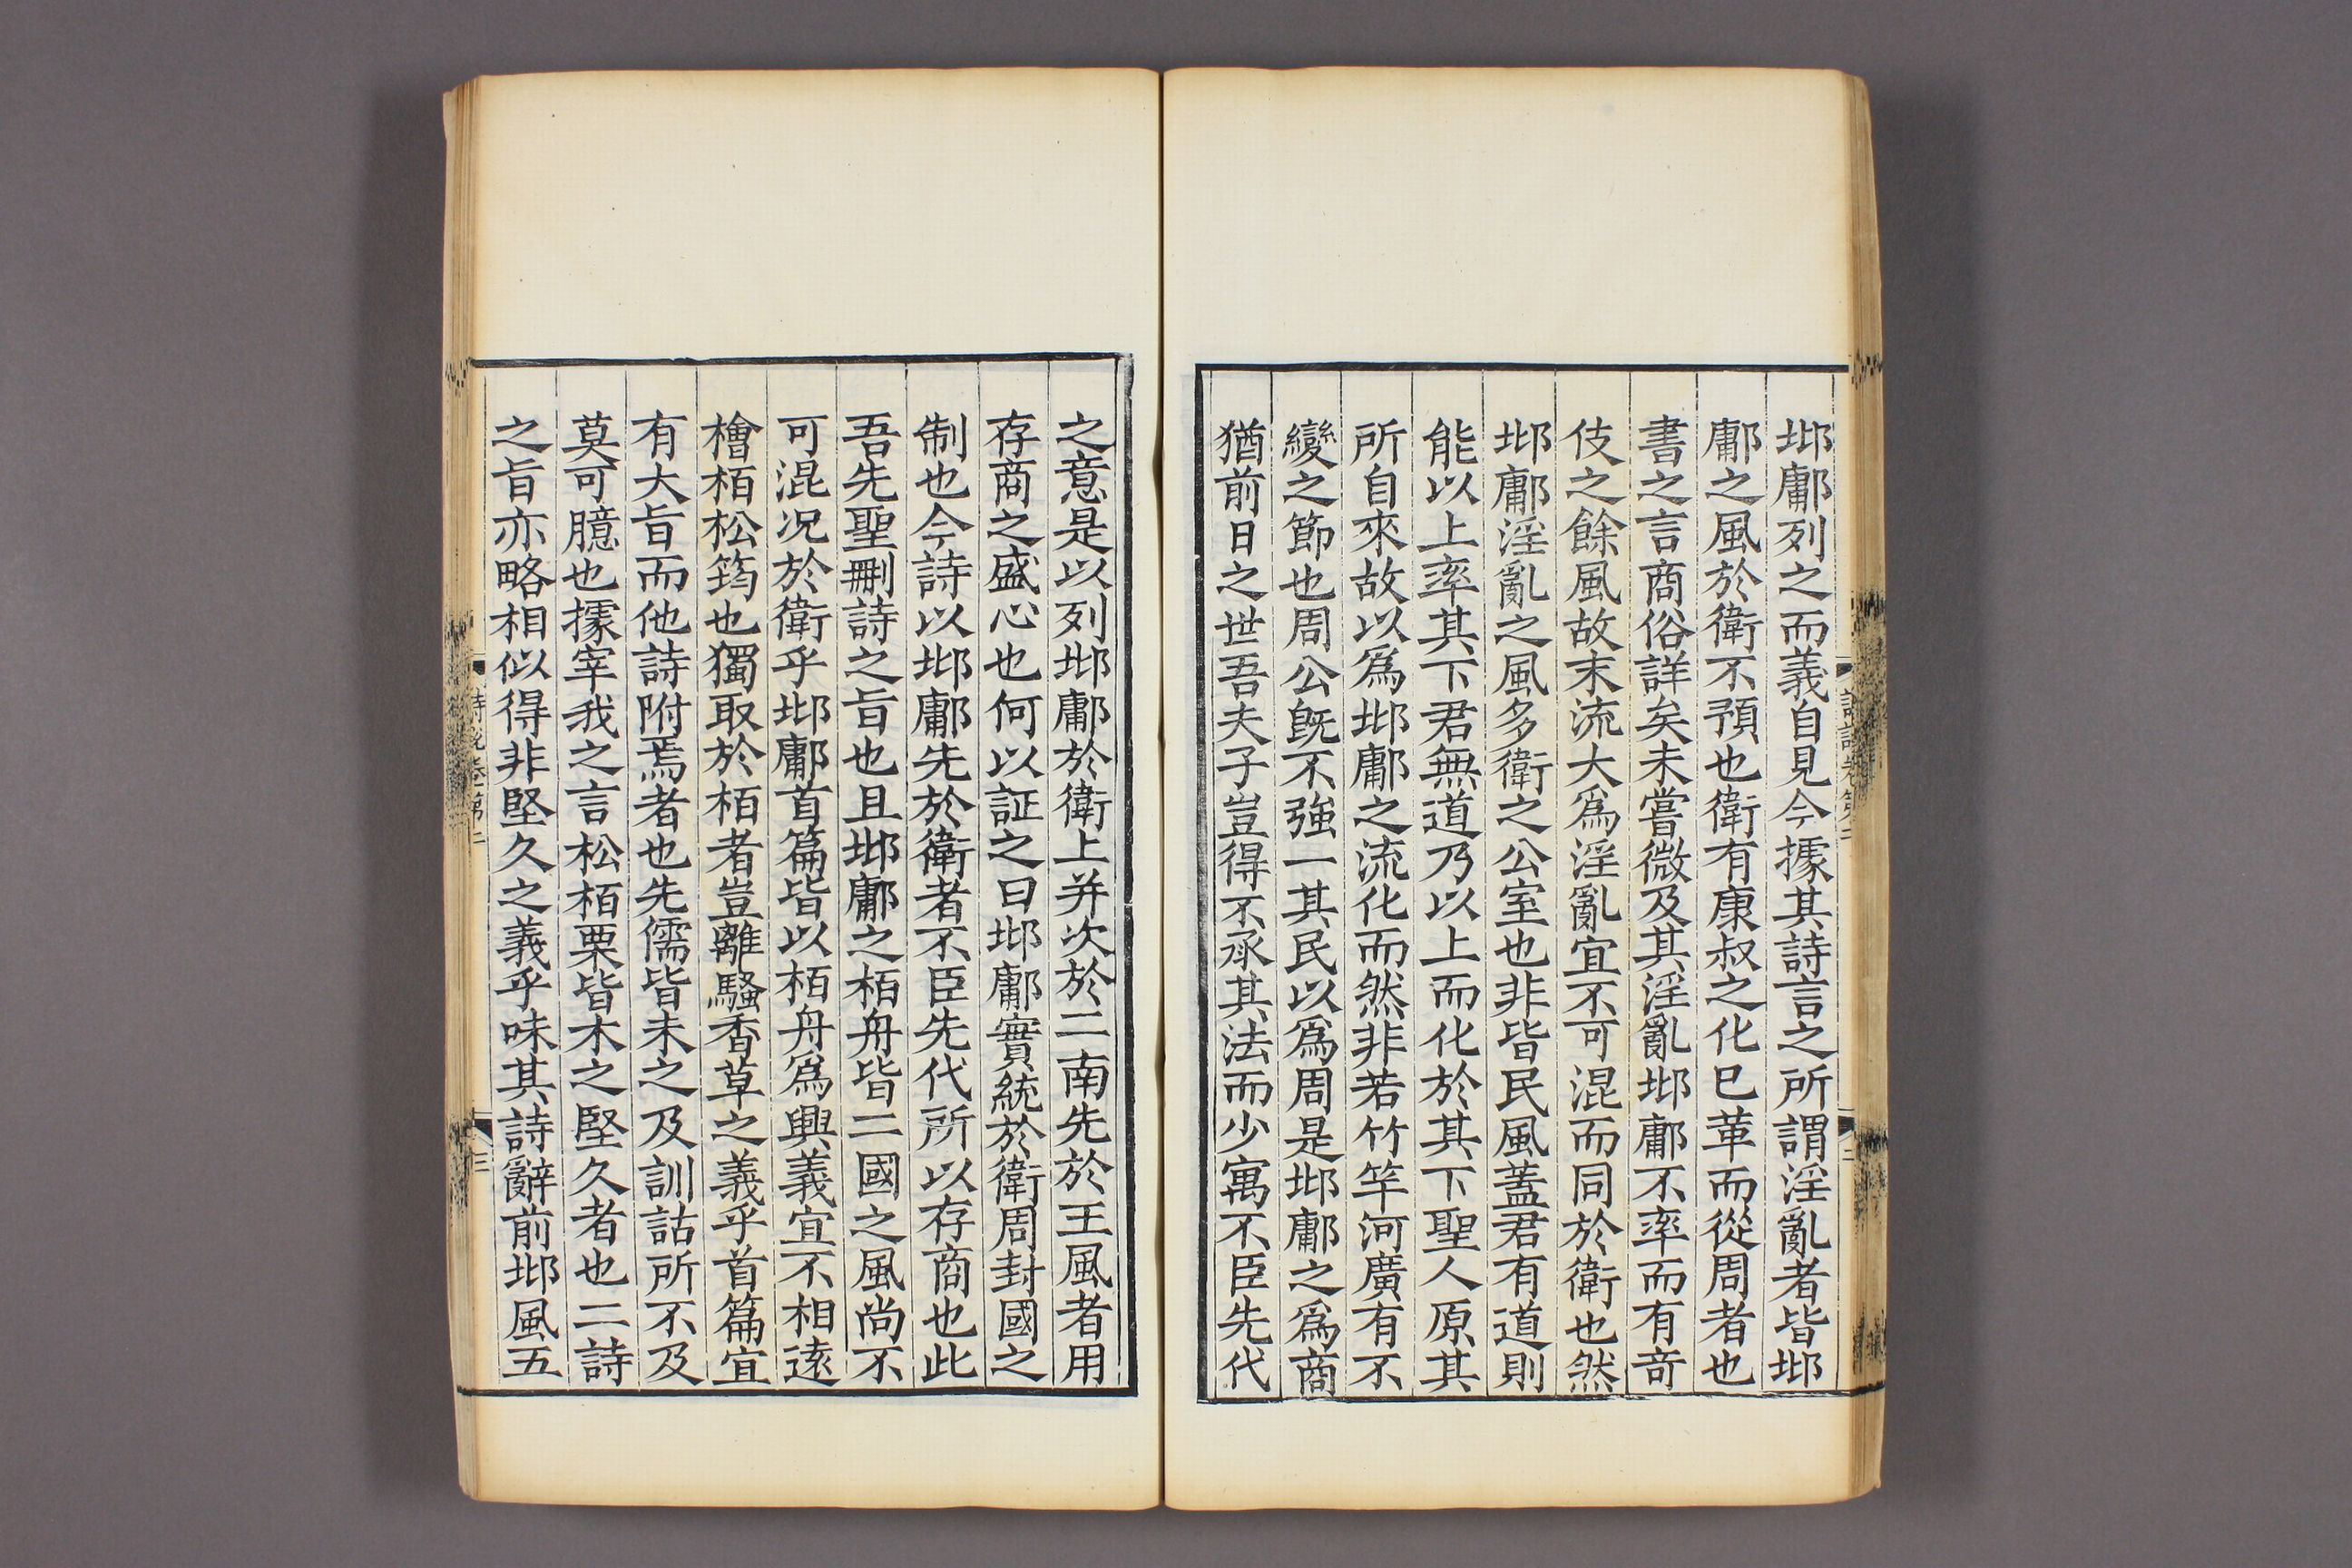 邶鄘列之而義自見今據其詩言之所謂淫亂者皆邶
鄘之風於衛不預也衛有康叔之化巳革而從周者也
書之言商俗詳矣未嘗微及其淫亂邶鄘不率而有竒
伎之餘風故末流大爲淫亂宜不可混而同於衛也然
邶鄘淫亂之風多衛之公室也非皆民風蓋君有道則
能以上率其下君無道乃以上而化於其下聖人原其
所自來故以爲邶鄘之流化而然非若竹竿河廣有不
變之節也周公旣不強一其民以爲周是邶鄘之爲商
猶前日之世吾夫子豈得不承其法而少寓不臣先代
之意是以列邶鄘於衛上并次於二南先於王風者用
存商之盛心也何以証之曰邶鄘實統於衛周封國之
制也今詩以邶鄘先於衛者不臣先代所以存商也此
吾先聖刪詩之旨也且邶鄘之栢舟皆二國之風尚不
可混况於衛乎邶鄘首篇皆以栢舟爲興義宜不相遠
檜栢松筠也獨取於栢者豈離騷香草之義乎首篇宜
有大旨而他詩附焉者也先儒皆未之及訓詁所不及
莫可臆也據宰我之言松栢栗皆木之堅久者也二詩
之旨亦略相似得非堅久之義乎味其詩辭前邶風五
詩説卷第二
三